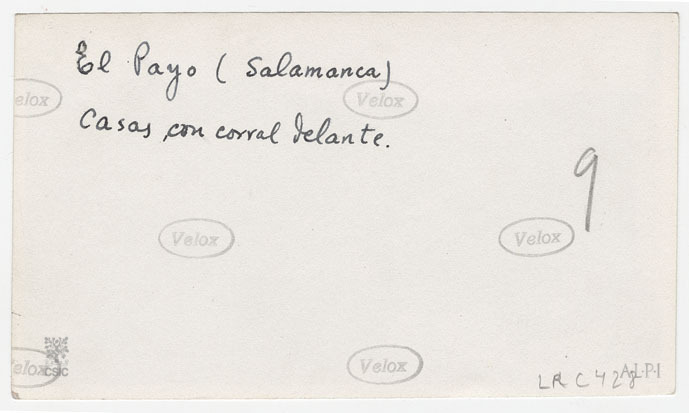 El Payo (Salamanca)
elox
Velox
Casas con corral delante.
9
Velox
Velox
elox
CSIC
Velox
LR C 428
A·L·P·I